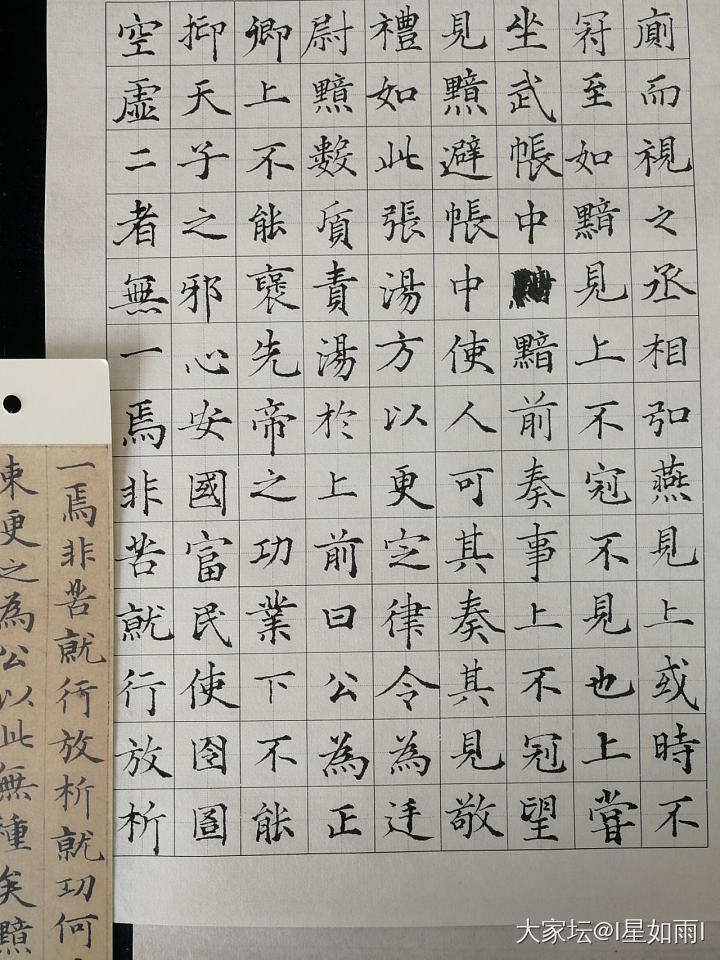 廁而視之丞相弘燕見上或時不
冠至如黯見上不冠不見也上嘗
坐武帳中黯前奏事上不冠望
見黯避帳中使人可其奏其見敬
禮如此張湯方以更定律令為廷
尉黯數質責湯於上前曰公為正
卿上不能褒先帝之功業下不能
抑天子之邪心安國富民使囹圄
空虛二者無一焉非苦就行放析
一焉非苦就行放析就功何
束更之為公以此無種矣黯
大家坛@l星如雨l